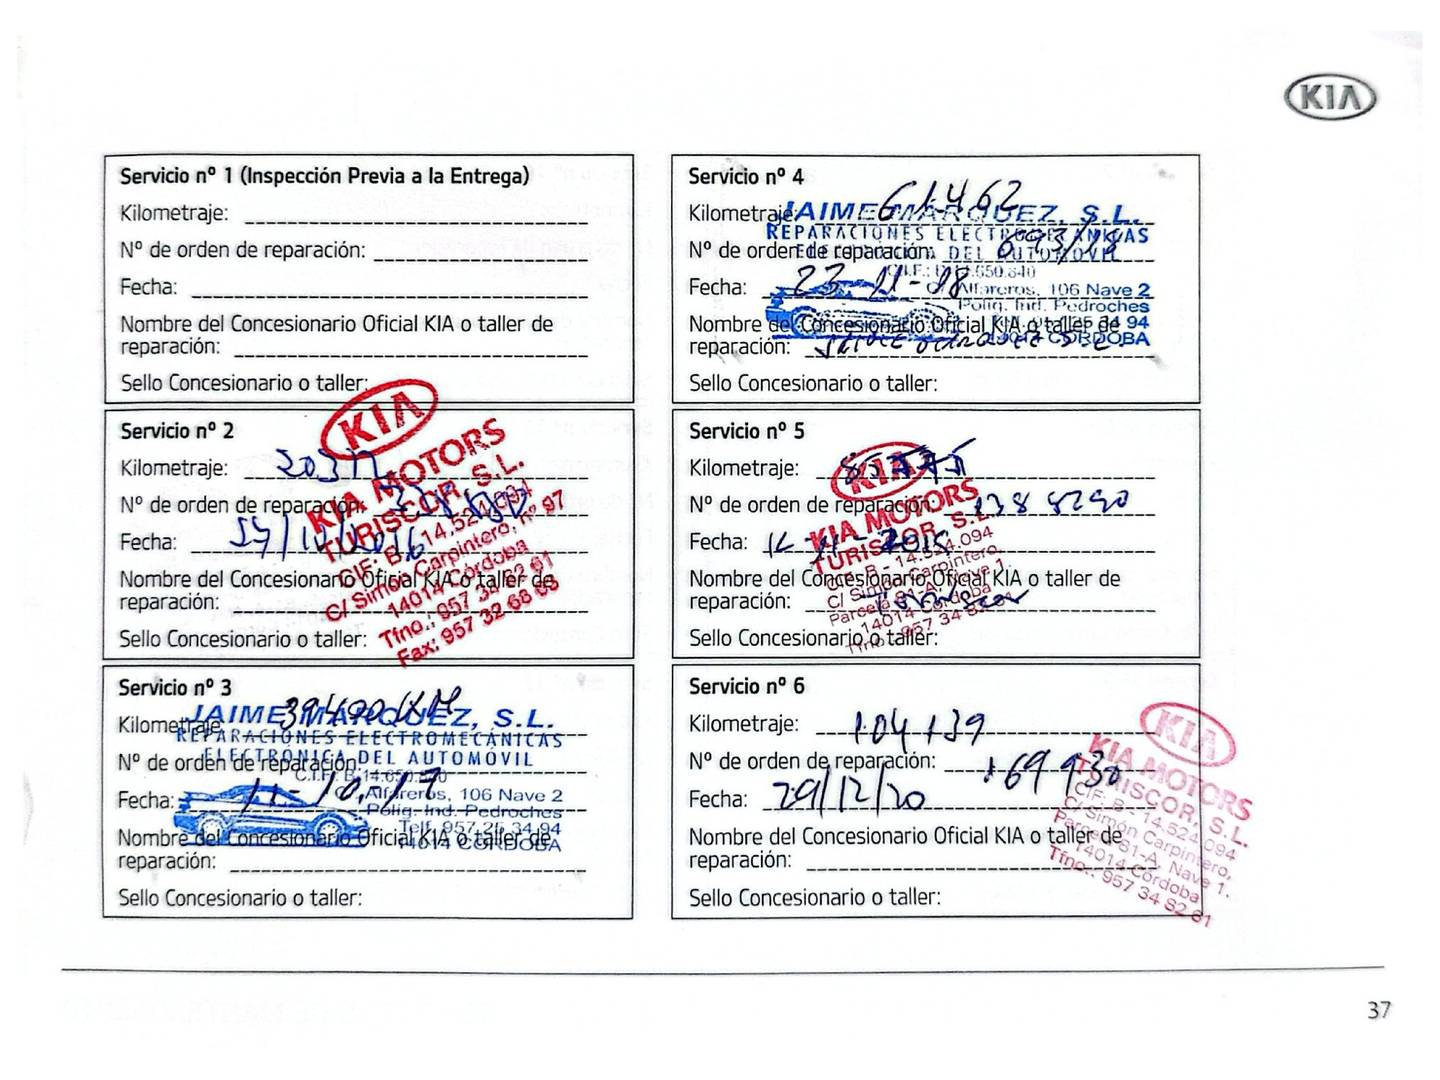 KIA
Servicio nº 1 (Inspección Previa a la Entrega)
Kilometraje:
Nº de orden de reparación:
Fecha:
Nombre del Concesionario Oficial KIA o taller de
reparación:
Sello Concesionario o taller:
Servicio nº 2
Kilometraje:
Nº de orden de reparación
Fecha:
Nombre del Concesionario Oficial KIA o taller de
reparación:
Sello Concesionario o taller:
KIA
KIA MOTORS
TURISCOR, S.L.
CIF: B - 14.524.094
C/ Simón Carpintero, nº 97
14014 Córdoba
Tfno.: 957 34 82 61
Fax: 957 32 68 63
Servicio nº 3
Kilometraje 39400 KM
Nº de orden de reparación:
Fecha: 11-10-17
Nombre del Concesionario Oficial KIA o taller de
reparación:
Sello Concesionario o taller:
JAIME MARQUEZ, S.L.
REPARACIONES ELECTROMECÁNICAS
ELECTRÓNICA DEL AUTOMÓVIL
C.I.F.: B-14.650.840
C/ Alfareros, 106 Nave 2
Polig. Ind. Pedroches
Telf. 957 25 34 94
14014 CÓRDOBA
Servicio nº 4
Kilometraje: 61462
Nº de orden de reparación: 693/18
Fecha: 23-11-18
Nombre del Concesionario Oficial KIA o taller de
reparación: JAIME MARQUEZ S.L.
Sello Concesionario o taller:
JAIME MARQUEZ, S.L.
REPARACIONES ELECTROMECÁNICAS
ELECTRÓNICA DEL AUTOMÓVIL
C.I.F.: B-14.650.840
C/ Alfareros, 106 Nave 2
Polig. Ind. Pedroches
94
14014 CÓRDOBA
Servicio nº 5
Kilometraje:
Nº de orden de reparación: 1388290
Fecha:
Nombre del Concesionario Oficial KIA o taller de
reparación: Turiscor
Sello Concesionario o taller:
KIA
KIA MOTORS
TURISCOR, S.L.
CIF: B - 14.524.094
C/ Simón Carpintero,
Parcela 81-A, Nave 1.
14014 Córdoba
Tfno.: 957 34 82 61
Servicio nº 6
Kilometraje: 104139
Nº de orden de reparación: 169930
Fecha: 29/12/20
Nombre del Concesionario Oficial KIA o taller de
reparación:
Sello Concesionario o taller:
KIA
KIA MOTORS
TURISCOR, S.L.
CIF: B - 14.524.094
C/ Simón Carpintero,
Parcela 81-A, Nave 1.
14014 Córdoba
Tfno.: 957 34 82 61
37